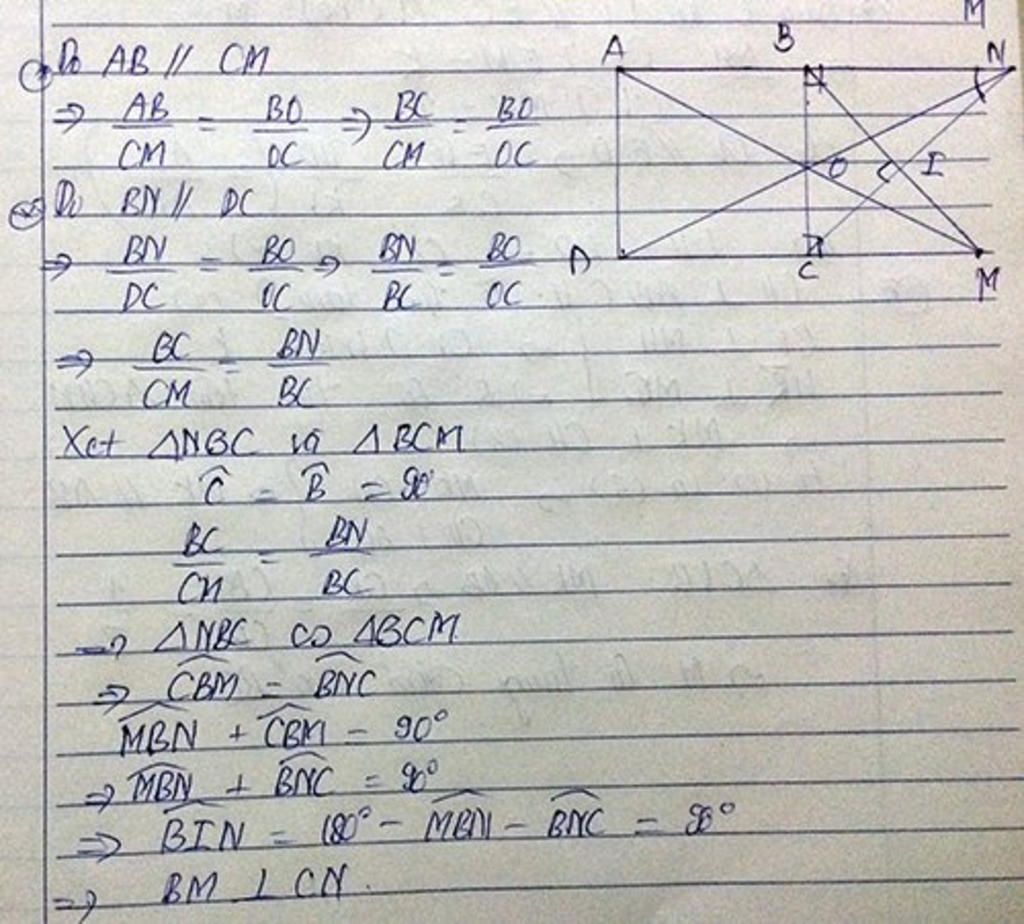 Do AB // CM
⇒ AB/CM = BO/OC ⇒ BC/CM = BO/OC
Do BN // DC
⇒ BN/DC = BO/OC ⇒ BN/BC = BO/OC
⇒ BC/CM = BN/BC
Xét △NBC và △BCM
Ĉ = B̂ = 90°
BC/CM = BN/BC
→ △NBC ∽ △BCM
⇒ \widehat{CBM} = \widehat{BNC}
\widehat{MBN} + \widehat{CBM} = 90°
⇒ \widehat{MBN} + \widehat{BNC} = 90°
⇒ \widehat{BIN} = 180° - \widehat{MBN} - \widehat{BNC} = 90°
⇒ BM ⊥ CN.
M
A B N
O I
D C M